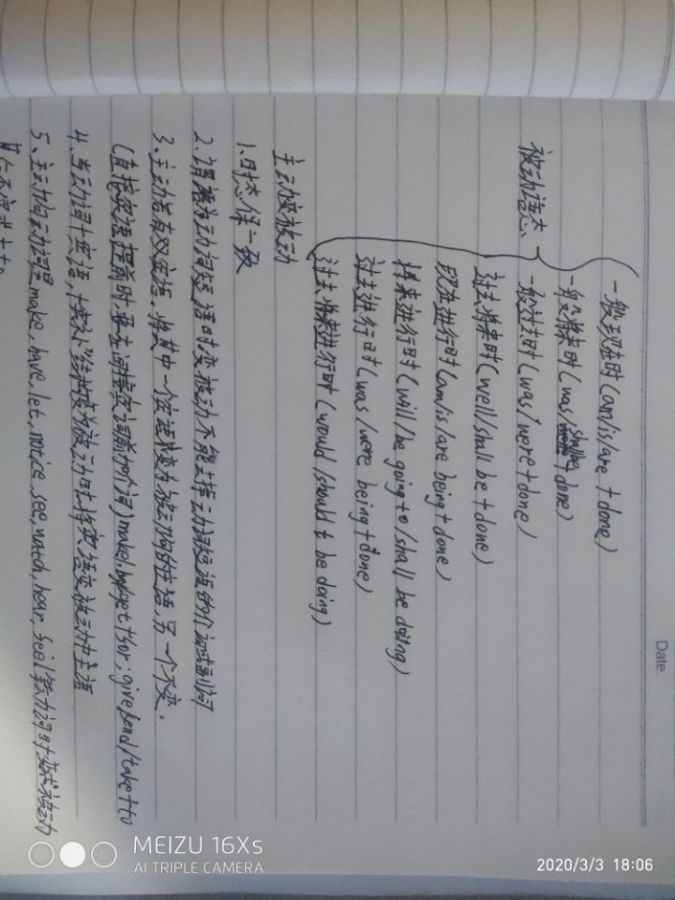 Date.
一般现在时(am/is/are + done)
一般将来时(was/shall be + done)
被动语态 一般过去时(was/were + done)
过去将来时(well/shall be + done)
现在进行时(am/is/are being + done)
将来进行时(will/be going to/shall be doing)
过去进行时(was/were being + done)
过去将来进行时(would/should + be doing)
主动变被动
1.时态保一致
2.谓语为动词短语时变被动不能丢掉动词短语的介词或副词
3、主动句有双宾语,将其中一个宾语变为被动句的主语,另一个不变.
(直接宾语提前时要在间接宾词前加介词)make/buy/get+for;give/send/take+to
4.当动词+宾语+宾补结构变为被动时将宾语变被动中主语
5、主动句动词是make,have,let,notice,see,watch,hear,feel等动词时变成被动
不定式+to
MEIZU 16Xs
AI TRIPLE CAMERA
2020/3/3 18:06